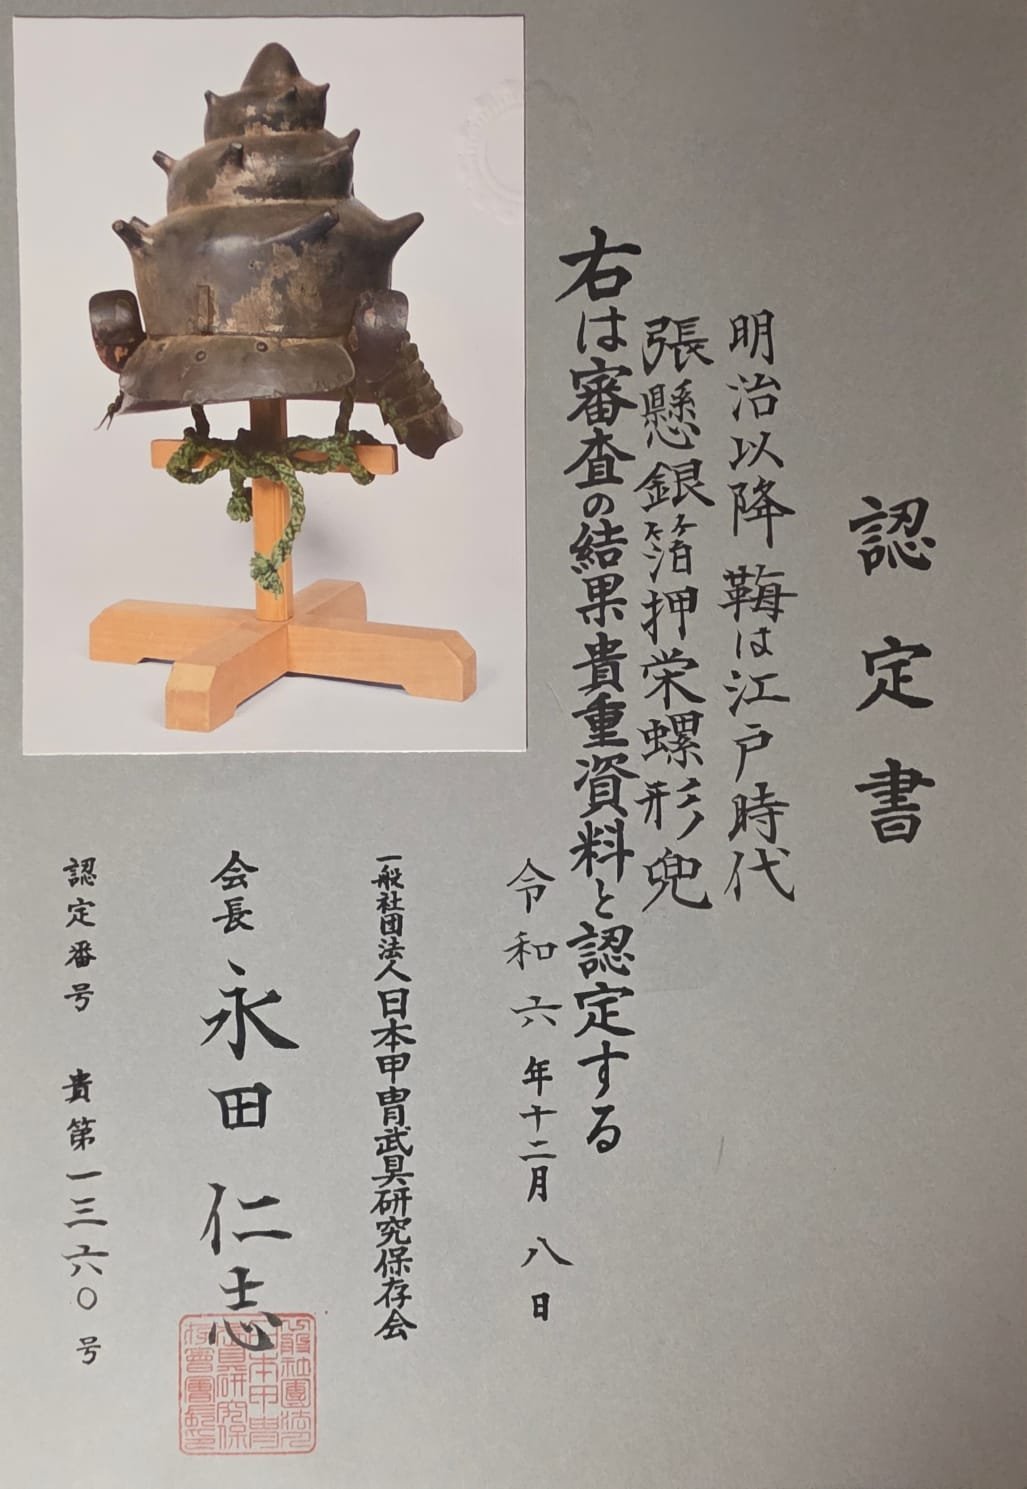 認定書
明治以降 鞠は江戸時代
張懸銀箔押栄螺形兜
右は審査の結果貴重資料と認定する
令和六年十二月八日
一般社団法人日本甲冑武具研究保存会
会長 永田仁志
認定番号 貴第一三六〇号